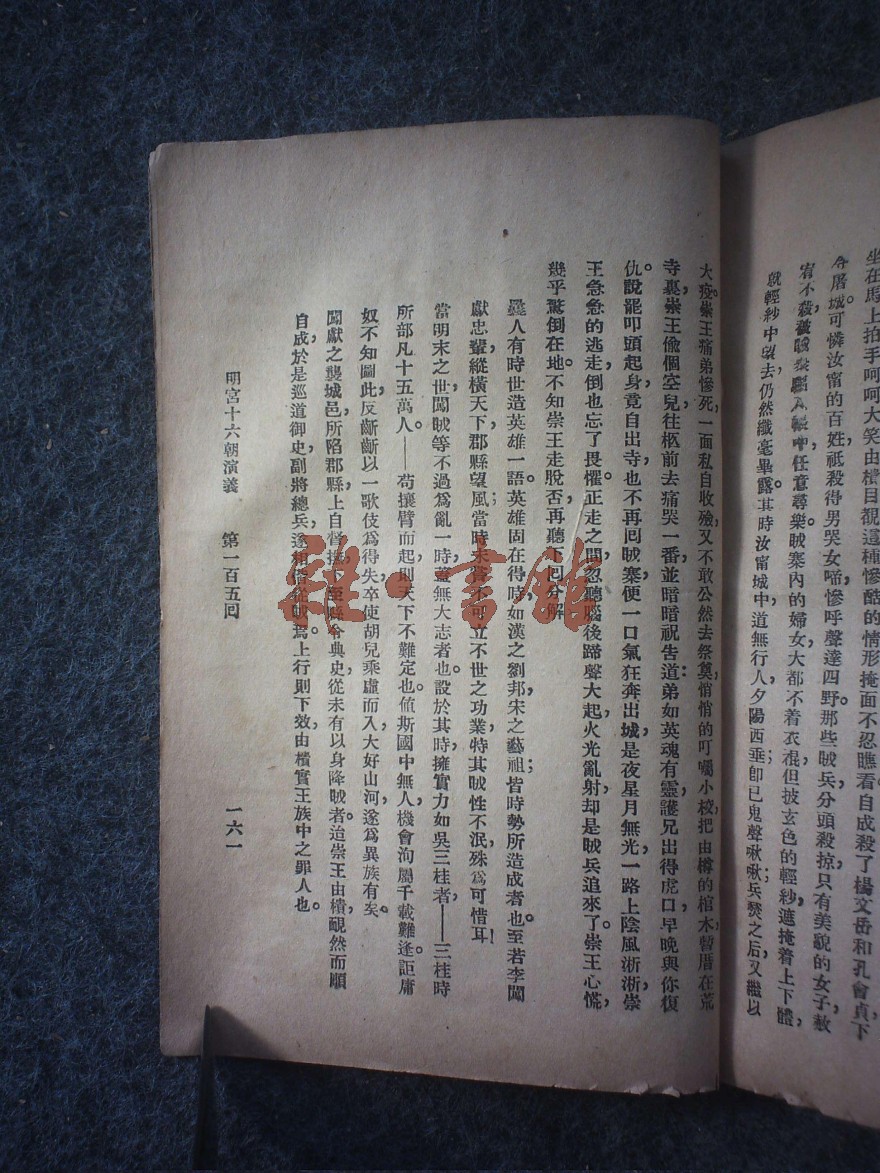 坐在馬上拍手呵呵大笑由樻目覩這種慘酷的情形掩面不忍瞧看自成殺了楊文岳和孔會貞下
令屠城可憐汝甯的百姓祇殺得男哭女啼慘呼聲達四野那些賊兵分頭殺掠只有美貌的女子赦
宥不殺被賊衆驅入帳中任意尋樂賊寨內的婦女大都不着衣裩但披玄色的輕紗遮掩着上下體
就輕紗中望去仍然纖毫畢露其時汝甯城中道無行人夕陽西垂卽已鬼聲啾啾兵燹之后又繼以
大疫崇王痛弟慘死一面私自收殮又不敢公然去祭奠悄悄的叮囑小校把由樽的棺木暫厝在荒
寺裏崇王偸個空兒往柩前去痛哭一番並暗暗祝告道弟如英魂有靈護兄出得虎口早晚與你復
仇說罷叩頭起身竟自出寺也不再回賊寨便一口氣狂奔出城是夜星月無光一路上陰風淅淅崇
王急急的逃走倒也忘了畏懼正走之間忽聽腦後蹄聲大起火光亂射却是賊兵追來了崇王心慌
幾乎驚倒在地不知崇王走脫否再聽下回分解
曩人有時世造英雄一語英雄固在得時如漢之劉邦宋之藝祖皆時勢所造成者也至若李闖
獻忠輩縱橫天下郡縣望風當時未嘗不可立不世之功業特其賊性不泯殊爲可惜耳
當明末之世闖賊等不過爲亂一時蓋無大志者也設於其時擁實力如吳三桂者——三桂時
所部凡十五萬人——苟攘臂而起則天下不難定也値斯國中無人機會洵屬千載難逢詎庸
奴不知圖此反齗齗以一歌伎爲得失卒使胡兒乘虛而入大好山河遂爲異族有矣
闖獻之襲城邑所陷郡縣上自督撫下至縣令典史從未有以身降賊者迨崇王由樻靦然而順
自成於是巡道御史副將總兵遂相偕從賊焉上行則下效由樻實王族中之罪人也
明宮十六朝演義 第一百五回 一六一
雜·書館